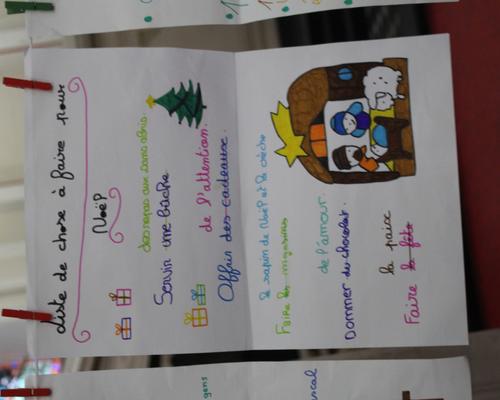 Liste de chose à faire pour
Noël
des repas aux sans abris.
Servir une bûche
de l'attention.
Offrir des cadeaux.
le sapin de Noël et la crèche
Faire les magasins
de l'amour.
Donner du chocolat.
la paix
Faire la fête
gens